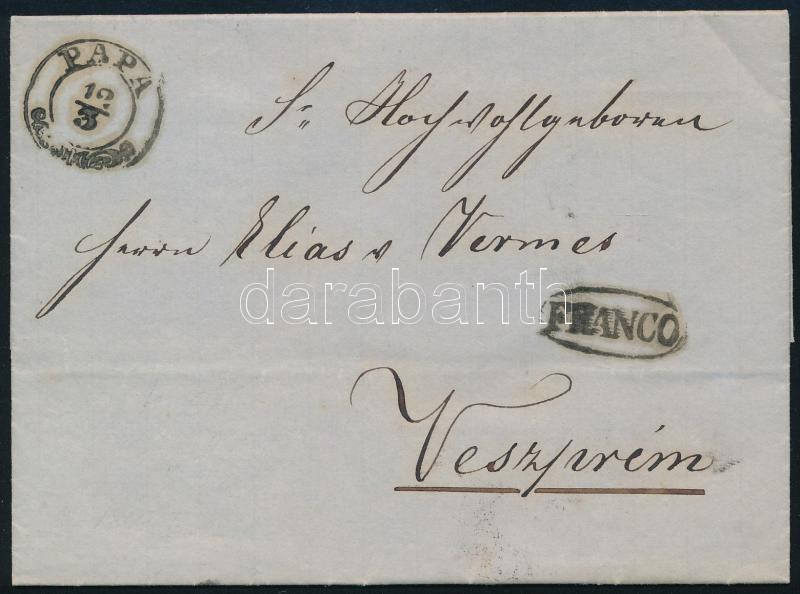 PAPA
12
3
Sr Hochwohlgeboren
Herrn Elias v Vermes
darabanth
FRANCO
Veszprém